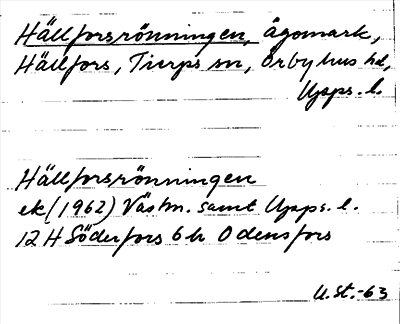 Hällforsrönningen, ägomark,
Hällfors, Tierps sn, Örbyhus hd,
Upps. l.
Hällforsrönningen
ek (1962) Västm. samt Upps. l.
12 H Söderfors 6 h Odensfors
U.St.-63